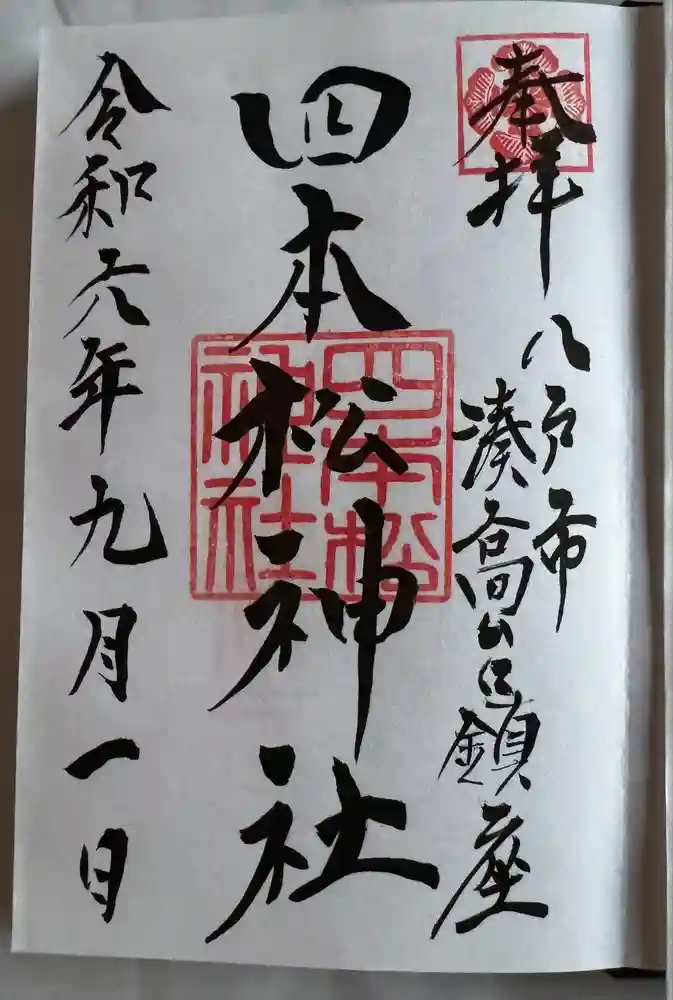 奉拝
八戸市
湊高台鎮座
四本松神社
四本松
神社
令和六年九月一日